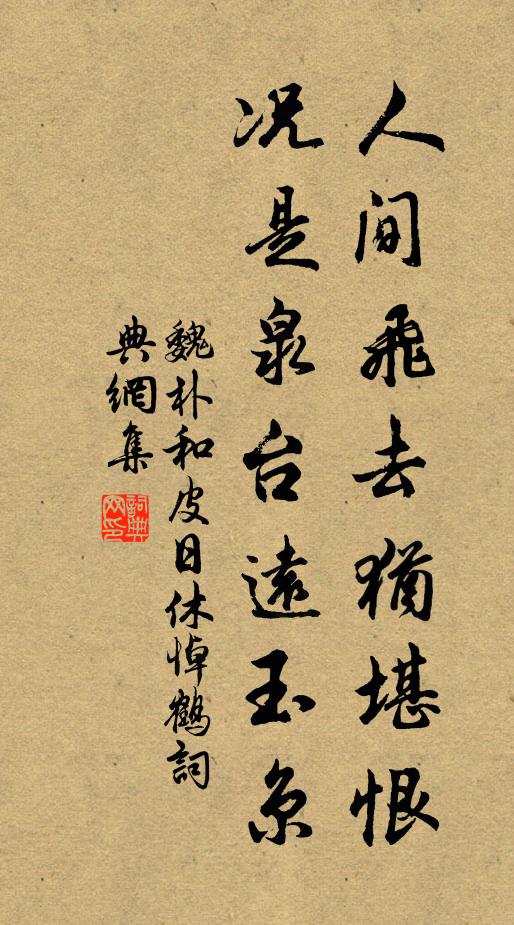 人间飛去猶堪恨
况是泉台遠玉京
魏朴和皮日休悼鶴詞
典網集
詞典网印